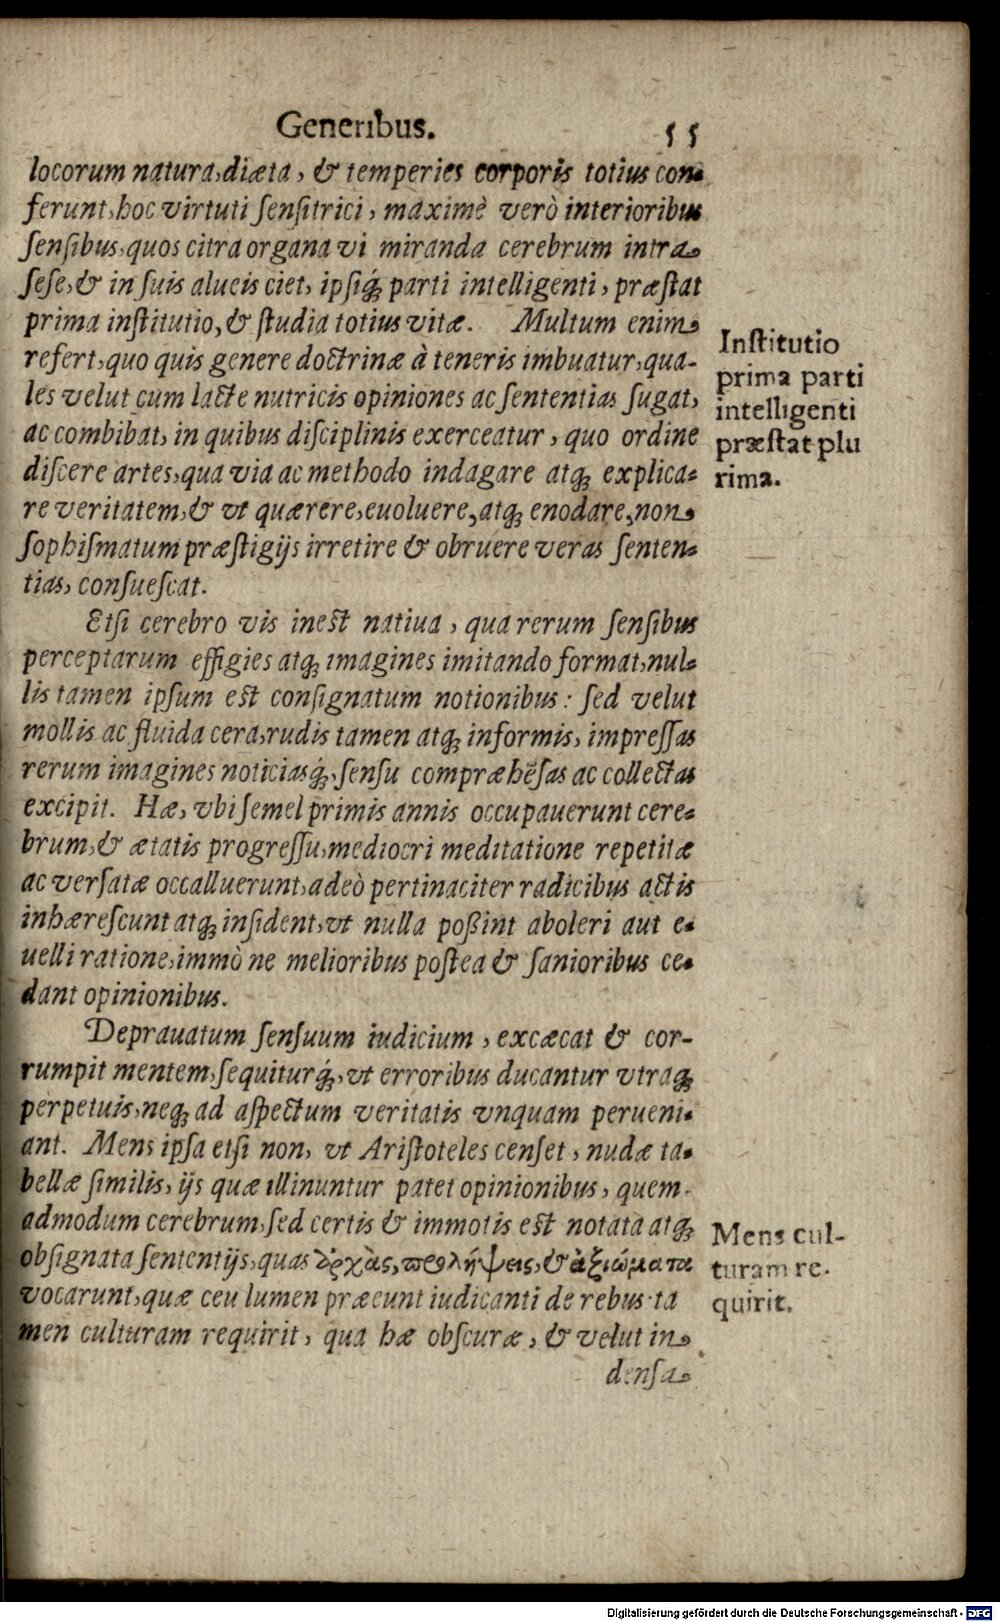 Generibus. 55
locorum natura, diæta, & temperies corporis totius con-
ferunt, hoc virtuti ſenſitrici, maximè verò interioribus
ſenſibus, quos citra organa vi miranda cerebrum intra
ſeſe, & in ſuis alueis ciet, ipſiq́; parti intelligenti, præſtat
prima inſtitutio, & ſtudia totius vitæ. Multum enim
refert, quo quis genere doctrinæ à teneris imbuatur, qua-
les velut cum lacte nutricis opiniones ac ſententias ſugat,
ac combibat, in quibus diſciplinis exerceatur, quo ordine
diſcere artes, qua via ac methodo indagare atq; explica-
re veritatem, & vt quærere, euoluere, atq; enodare, non
ſophiſmatum præſtigijs irretire & obruere veras ſenten-
tias, conſueſcat.
Inſtitutio
prima parti
intelligenti
præſtat plu
rima.
Etſi cerebro vis ineſt natiua, qua rerum ſenſibus
perceptarum effigies atq; imagines imitando format, nul-
lis tamen ipſum eſt conſignatum notionibus: ſed velut
mollis ac fluida cera, rudis tamen atq; informis, impreſſas
rerum imagines noticiasq́;, ſenſu compræhēſas ac collectas
excipit. Hæ, vbi ſemel primis annis occupauerunt cere-
brum, & ætatis progreſſu, mediocri meditatione repetitæ
ac verſatæ occalluerunt, adeò pertinaciter radicibus actis
inhæreſcunt atq; inſident, vt nulla poßint aboleri aut e-
uelli ratione, immò ne melioribus poſtea & ſanioribus ce-
dant opinionibus.
Deprauatum ſenſuum iudicium, excæcat & cor-
rumpit mentem, ſequiturq́;, vt erroribus ducantur vtraq;
perpetuis, neq; ad aſpectum veritatis vnquam perueni-
ant. Mens ipſa etſi non, vt Ariſtoteles cenſet, nudæ ta-
bellæ ſimilis, ijs quæ illinuntur patet opinionibus, quem-
admodum cerebrum, ſed certis & immotis eſt notata atq;
obſignata ſententijs, quas ἀρχὰς, προλήψεις, & ἀξιώματα
vocarunt, quæ ceu lumen præeunt iudicanti de rebus: ta
men culturam requirit, qua hæ obſcuræ, & velut in
Mens cul-
turam re-
quirit.
denſa
Digitalisierung gefördert durch die Deutsche Forschungsgemeinschaft - DFG